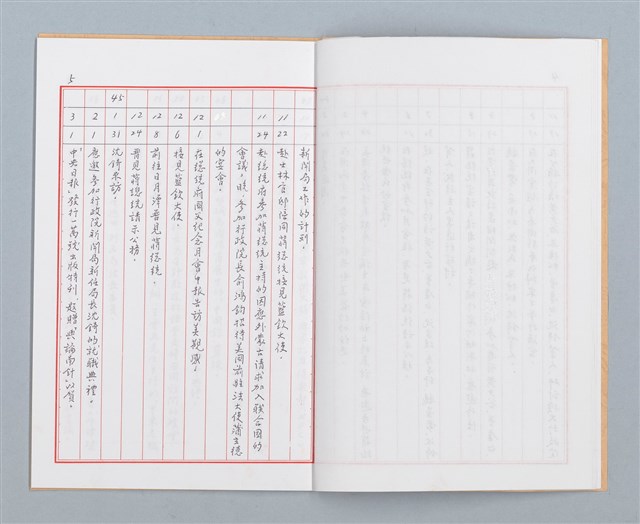 5
新聞局工作的計劃。
11 22 赴士林官邸陪同蔣總統接見藍欽大使。
11 24 赴總統府參加蔣總統主持的因應外蒙古請求加入聯合國的
會議。晚，參加行政院長俞鴻鈞招待美國前駐法大使蒲立德
的宴會。
12 1 在總統府國父紀念月會中報告訪美觀感。
12 6 接見藍欽大使。
12 8 前往日月潭晉見蔣總統。
12 24 晉見蔣總統請示公務。
45 1 31 沈錡來訪。
2 1 應邀參加行政院新聞局新任局長沈錡的就職典禮。
3 1 「中央日報」發行一萬號出版特刊，題贈「輿論南針」以賀。